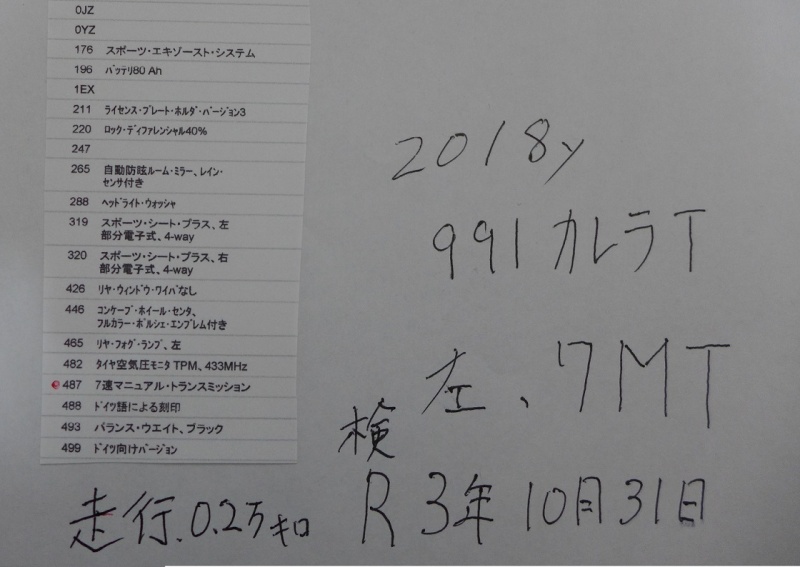 0JZ
0YZ
176 スポーツ・エキゾースト・システム
196 ﾊﾞｯﾃﾘ80 Ah
1EX
211 ﾗｲｾﾝｽ・ﾌﾟﾚｰﾄ・ﾎﾙﾀﾞ・ﾊﾞｰｼﾞｮﾝ3
220 ﾛｯｸ・ﾃﾞｨﾌｧﾚﾝｼｬﾙ40%
247
265 自動防眩ﾙｰﾑ・ﾐﾗｰ、ﾚｲﾝ・
ｾﾝｻ付き
288 ﾍｯﾄﾞﾗｲﾄ・ｳｫｯｼｬ
319 スポーツ・シート・プラス、左
部分電子式、4-way
320 スポーツ・シート・プラス、右
部分電子式、4-way
426 ﾘﾔ・ｳｨﾝﾄﾞｳ・ﾜｲﾊﾟなし
446 ｺﾝｹｰﾌﾞ・ﾎｲｰﾙ・ｾﾝﾀ、
ﾌﾙｶﾗｰ・ﾎﾟﾙｼｪ・ｴﾝﾌﾞﾚﾑ付き
465 ﾘﾔ・ﾌｫｸﾞ・ﾗﾝﾌﾟ、左
482 ﾀｲﾔ空気圧ﾓﾆﾀ TPM、433MHz
487 7速マニュアル・トランスミッション
488 ﾄﾞｲﾂ語による刻印
493 バランス・ウエイト、ブラック
499 ﾄﾞｲﾂ向けﾊﾞｰｼﾞｮﾝ
2018y
991カレラT
左、7MT
検
R3年10月31日
走行、0.2万キロ